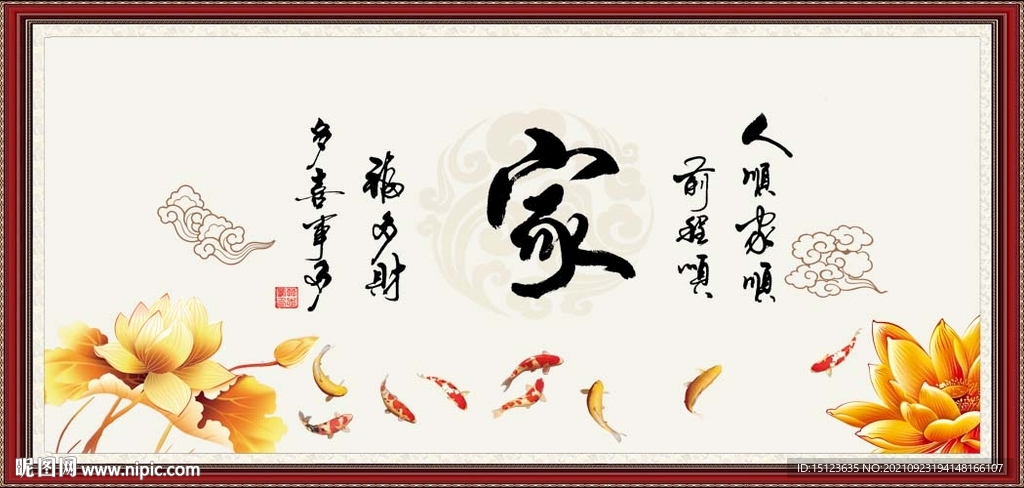 人順家順
前程順
家
福多財
多喜事多
昵图网 www.nipic.com
ID:15123635 NO:20210923194148166107